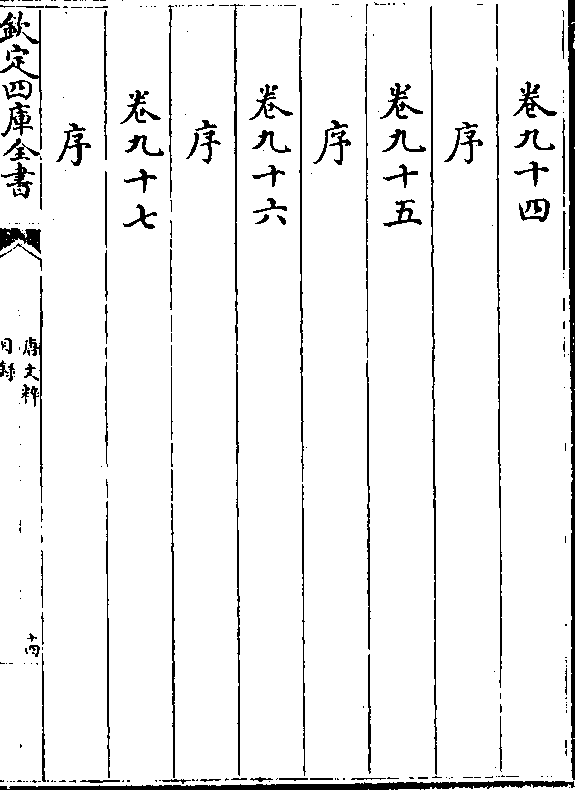 卷九十四
序
卷九十五
序
卷九十六
序
卷九十七
序
欽定四庫全書
唐文粹
目録
十四